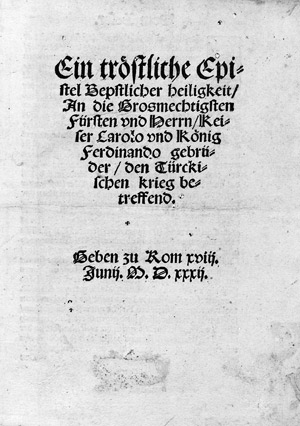 Ein tröstliche Epi⸗
stel Bepstlicher heiligkeit/
An die Grosmechtigsten
Fürsten vnd Herrn/Kei⸗
ser Carolo vnd König
Ferdinando gebrü⸗
der/den Türcki⸗
schen krieg be⸗
treffend.
Geben zu Rom xviij.
Junij. M. D. xxxij.